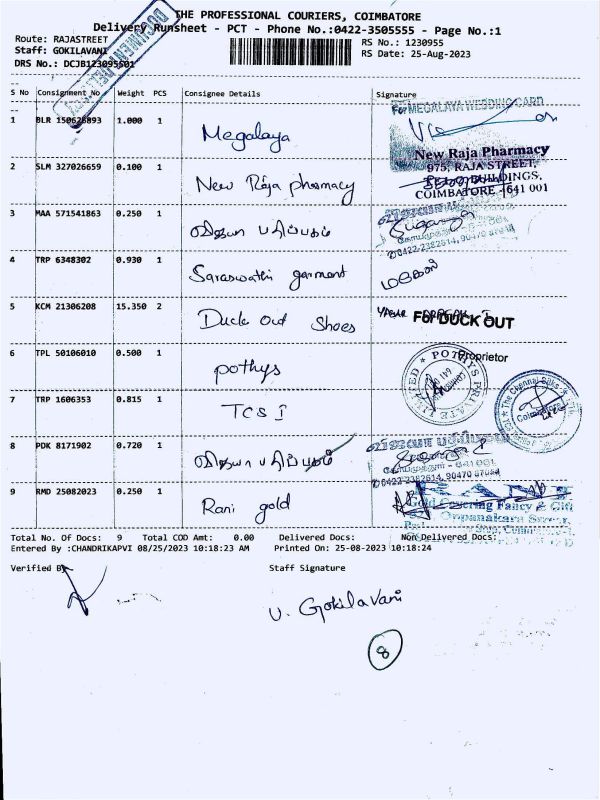 THE PROFESSIONAL COURIERS, COIMBATORE
Delivery Runsheet - PCT - Phone No.:0422-3505555 - Page No.:1
Route: RAJASTREET
RS No.: 1230955
Staff: GOKILAVANI
RS Date: 25-Aug-2023
DRS No.: DCJB1230955501
S No Consignment No Weight PCS Consignee Details Signature
For MEGALAYA WEDDING CARD
1 BLR 150626893 1.000 1 Megalaya
New Raja Pharmacy
975, RAJA STREET,
BUILDINGS,
COIMBATORE - 641 001
2 SLM 327026659 0.100 1 New Raja pharmacy
3 MAA 571541863 0.250 1 விஜயா பதிப்பகம்
0422-2382614, 90470
4 TRP 6348302 0.930 1 Saraswathi garment
5 KCM 21306208 15.350 2 Duck out Shoes
For DUCK OUT
Proprietor
6 TPL 50106010 0.500 1 pothys
POTHYS PRIVATE LIMITED
7 TRP 1606353 0.815 1 TCS I
The Chennai Silks
Coimbatore
8 PDK 8171902 0.720 1 விஜயா பதிப்பகம்
விஜயா பதிப்பகம்
0422-2382614, 90470 87054
9 RMD 25082023 0.250 1 Rani gold
Gold Covering Fancy & Gift
Oppanakara Street,
Total No. Of Docs: 9 Total COD Amt: 0.00 Delivered Docs: Non Delivered Docs:
Entered By :CHANDRIKAPVI 08/25/2023 10:18:23 AM Printed On: 25-08-2023 10:18:24
Verified By
Staff Signature
V. Gokilavani
8